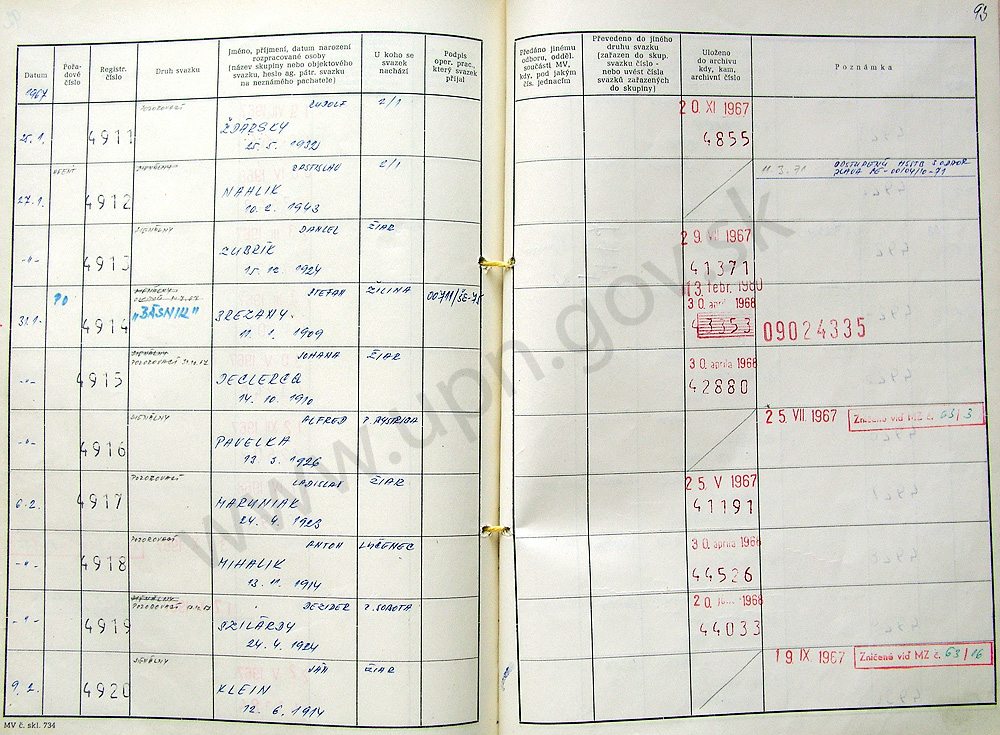 93
Datum
Pořa-
dové
číslo
Registr.
číslo
Druh svazku
Jméno, příjmení, datum narození
rozpracované osoby
(název skupiny nebo objektového
svazku, heslo ag. pátr. svazku
na neznámého pachatele)
U koho se
svazek
nachází
Podpis
oper. prac.,
který svazek
přijal
Předáno jinému
odboru, odděl.
součásti MV,
kdy, pod jakým
čís. jednacím
Převedeno do jiného
druhu svazku
(zařazen do skup.
svazku číslo -
nebo uvést čísla
svazků zařazených
do skupiny)
Uloženo
do archivu
kdy, kam,
archivní číslo
Poznámka
1967
POZOROVACÍ RUDOLF 2/1
25.1. 4911 ŽĎÁRSKY
25. 5. 1932
20. XI 1967
4855
SIGNÁLNY RASTISLAV 2/1
27.1. 4912 NAHLIK
10. 2. 1943
11. 3. 71
SIGNÁLNY DANIEL ŽIAR
-"- 4913 ZUBRÍK
15. 12. 1924
29. VII 1967
41371
PO SIGNÁLNY STEFAN ŽILINA 00711/ŠE-75
31.1. 4914 "BÁSNIK" BREZANY
11. 1. 1909
13 febr. 1980
30. apríla 1968
43353
09024335
SIGNÁLNY JOHANA ŽIAR
POZOROVACÍ
-"- 4915 DECLERCQ
14. 10. 1910
30. apríla 1968
42880
SIGNÁLNY ALFRED P. BYSTRICA
-"- 4916 PAVELKA
13. 3. 1926
25. VII. 1967 Zničené viď MZ č. 63/3
POZOROVACÍ LADISLAV ŽIAR
6.2. 4917 MARUNIAK
24. 4. 1923
25. V 1967
41191
POZOROVACÍ ANTON LUČENEC
-"- 4918 MIHALIK
13. 11. 1914
30. apríla 1968
44526
SIGNÁLNY DEZIDER R. SOBOTA
POZOROVACÍ
-"- 4919 SZILÁRDY
24. 4. 1924
20. 1968
44033
SIGNÁLNY JÁN ŽIAR
9. 2. 4920 KLEIN
12. 6. 1914
19. IX. 1967 Zničené viď MZ č. 63/16
MV č. skl. 734
www.upn.gov.sk